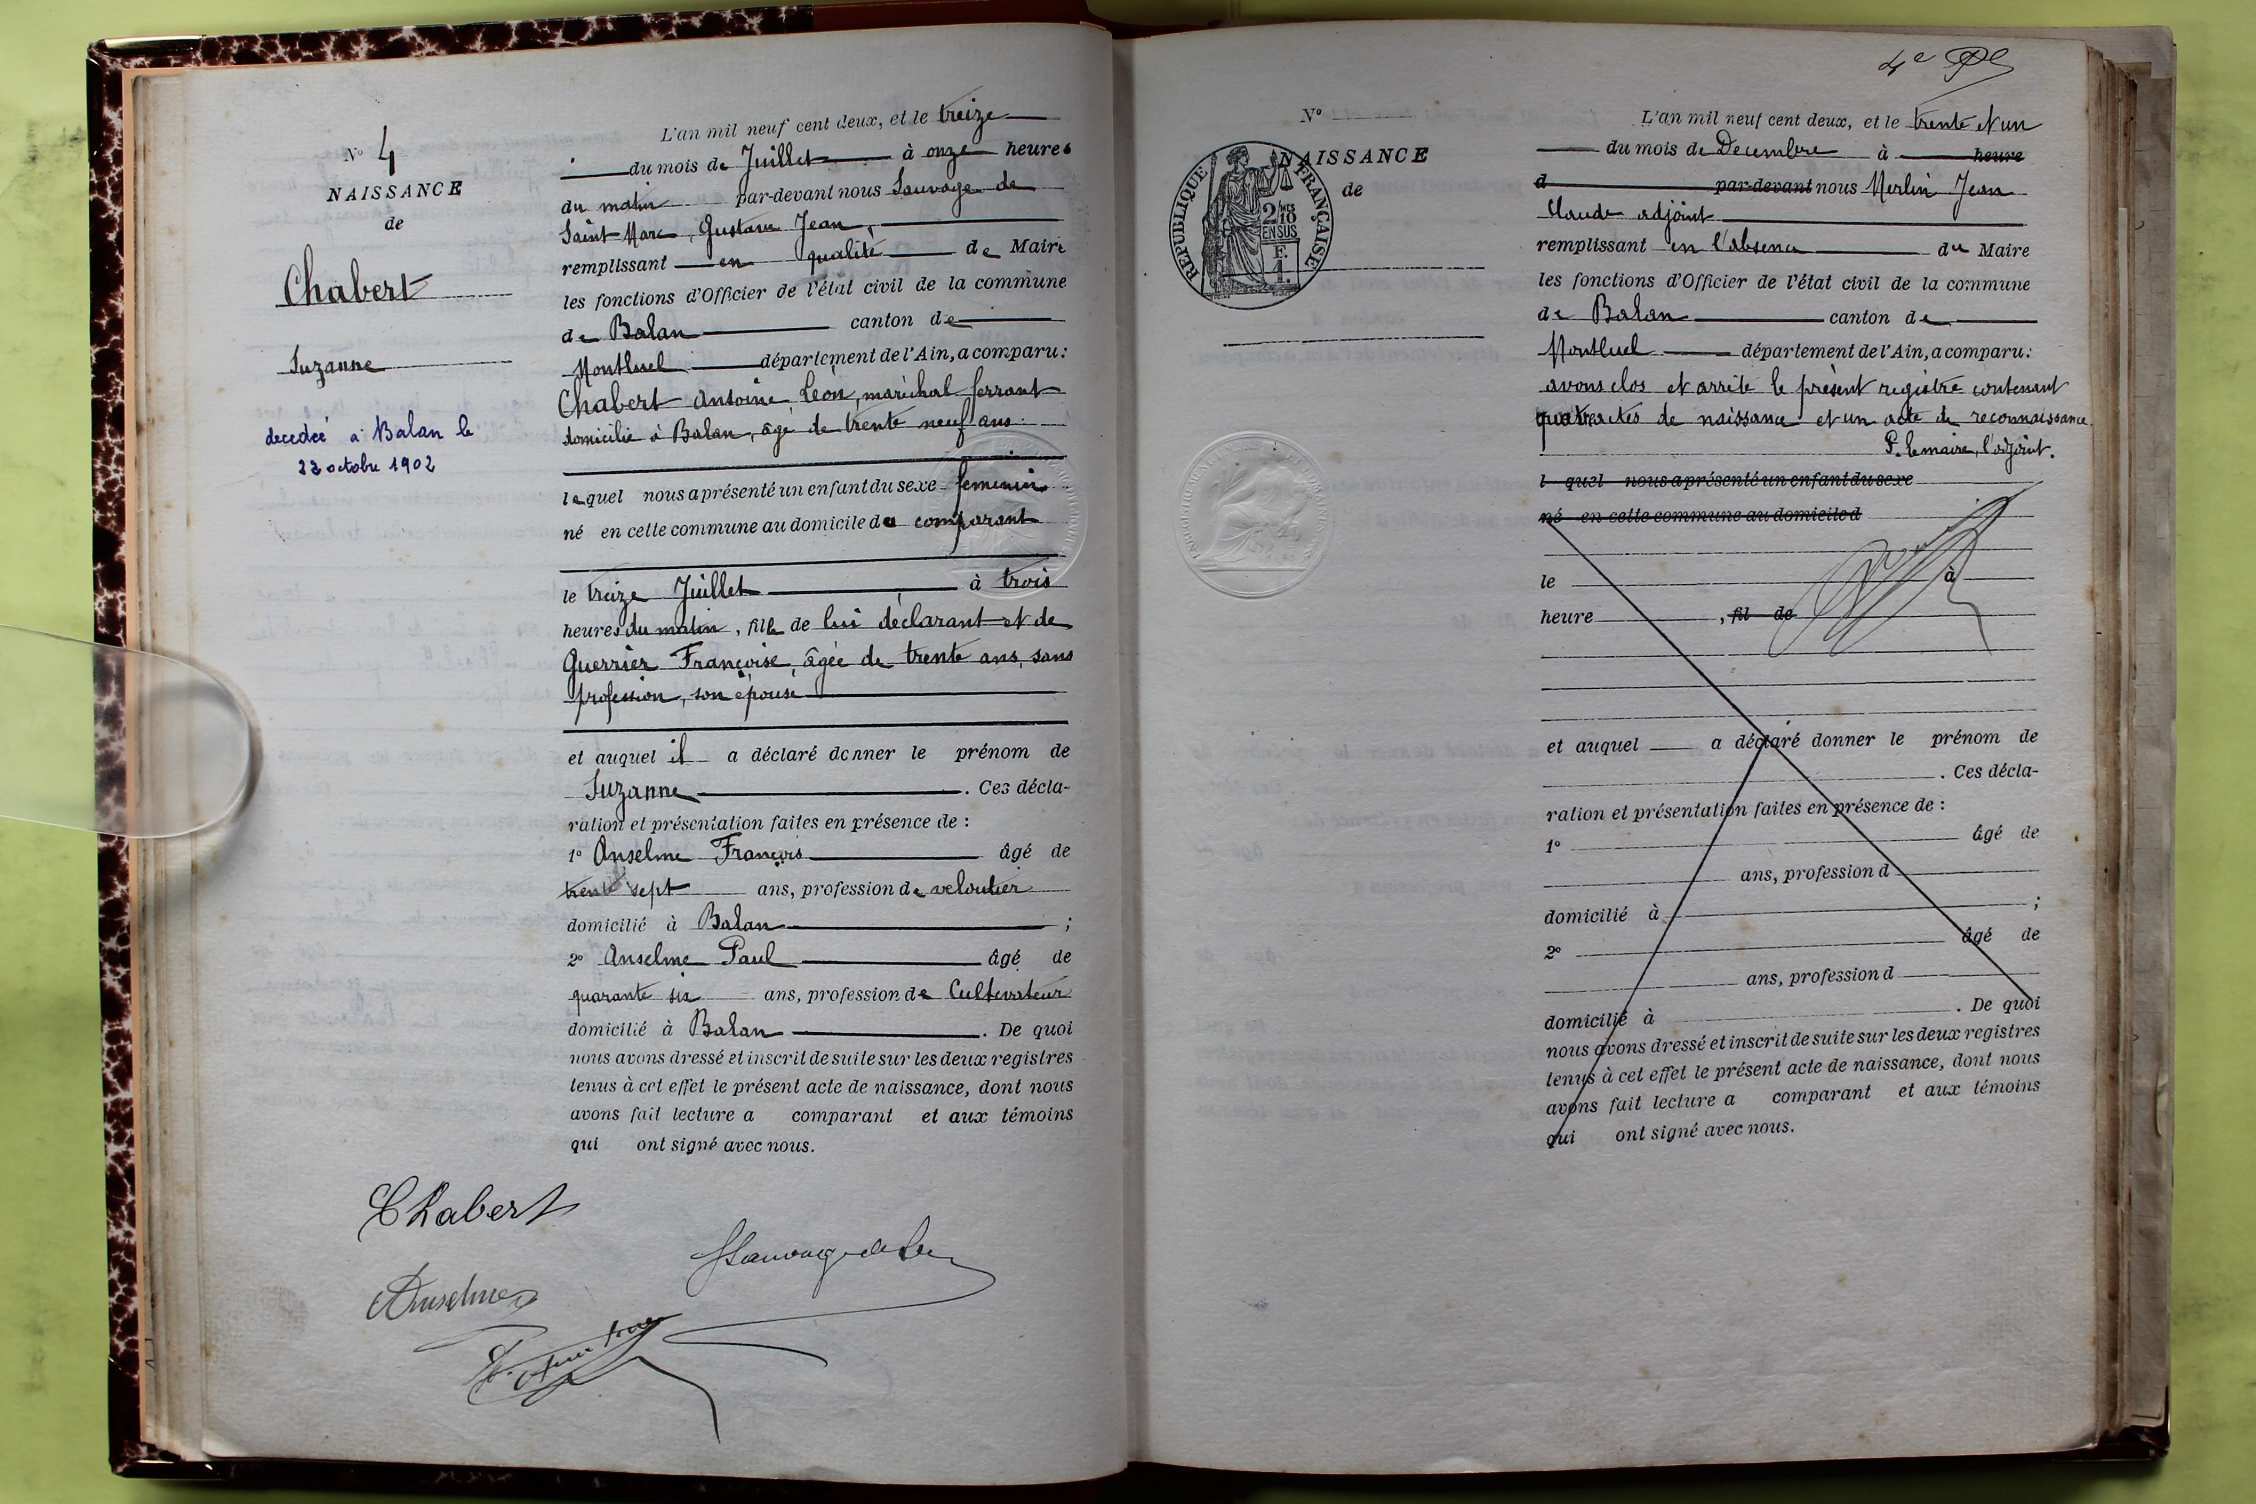 N° 4
NAISSANCE
de
Chabert
Suzanne
decedeé a Balan le
22 octobre 1902
L'an mil neuf cent deux, et le treize
du mois de Juillet à onze heures
du matin par-devant nous Sauvage de
Saint Marc, Gustave Jean,
remplissant en qualité de Maire
les fonctions d'Officier de l'état civil de la commune
de Balan canton de
Montluel département de l'Ain, a comparu:
Chabert Antoine Léon, maréchal ferrant
domicilié à Balan, âgé de trente neuf ans.
lequel nous a présenté un enfant du sexe feminin
né en cette commune au domicile du comparant
le treize Juillet à trois
heures du matin, fille de lui déclarant et de
Guerrier Françoise, âgée de trente ans, sans
profession, son épouse
et auquel il a déclaré donner le prénom de
Suzanne. Ces décla-
ration et présentation faites en présence de :
1° Anselme François âgé de
trente sept ans, profession de veloutier
domicilié à Balan ;
2° Anselme Paul âgé de
quarante six ans, profession de Cultivateur
domicilié à Balan. De quoi
nous avons dressé et inscrit de suite sur les deux registres
tenus à cet effet le présent acte de naissance, dont nous
avons fait lecture a comparant et aux témoins
qui ont signé avec nous.
Chabert
Anselme
4e
N°
NAISSANCE
de
REPUBLIQUE FRANÇAISE
2/10
EN SUS
F.
1.
L'an mil neuf cent deux, et le trente et un
du mois de Decembre à heure
d par-devant nous Merlin Jean
Claude adjoint
remplissant en l'absence du Maire
les fonctions d'Officier de l'état civil de la commune
de Balan canton de
Montluel département de l'Ain, a comparu:
avons clos et arrêté le présent registre contenant
quatre actes de naissance et un acte de reconnaissance.
P. le maire, l'adjoint.
l quel nous a présenté un enfant du sexe
né en cette commune au domicile d
le à
heure , fil de
et auquel a déclaré donner le prénom de
. Ces décla-
ration et présentation faites en présence de :
1° âgé de
ans, profession d
domicilié à ;
2° âgé de
ans, profession d
domicilié à . De quoi
nous avons dressé et inscrit de suite sur les deux registres
tenus à cet effet le présent acte de naissance, dont nous
avons fait lecture a comparant et aux témoins
qui ont signé avec nous.